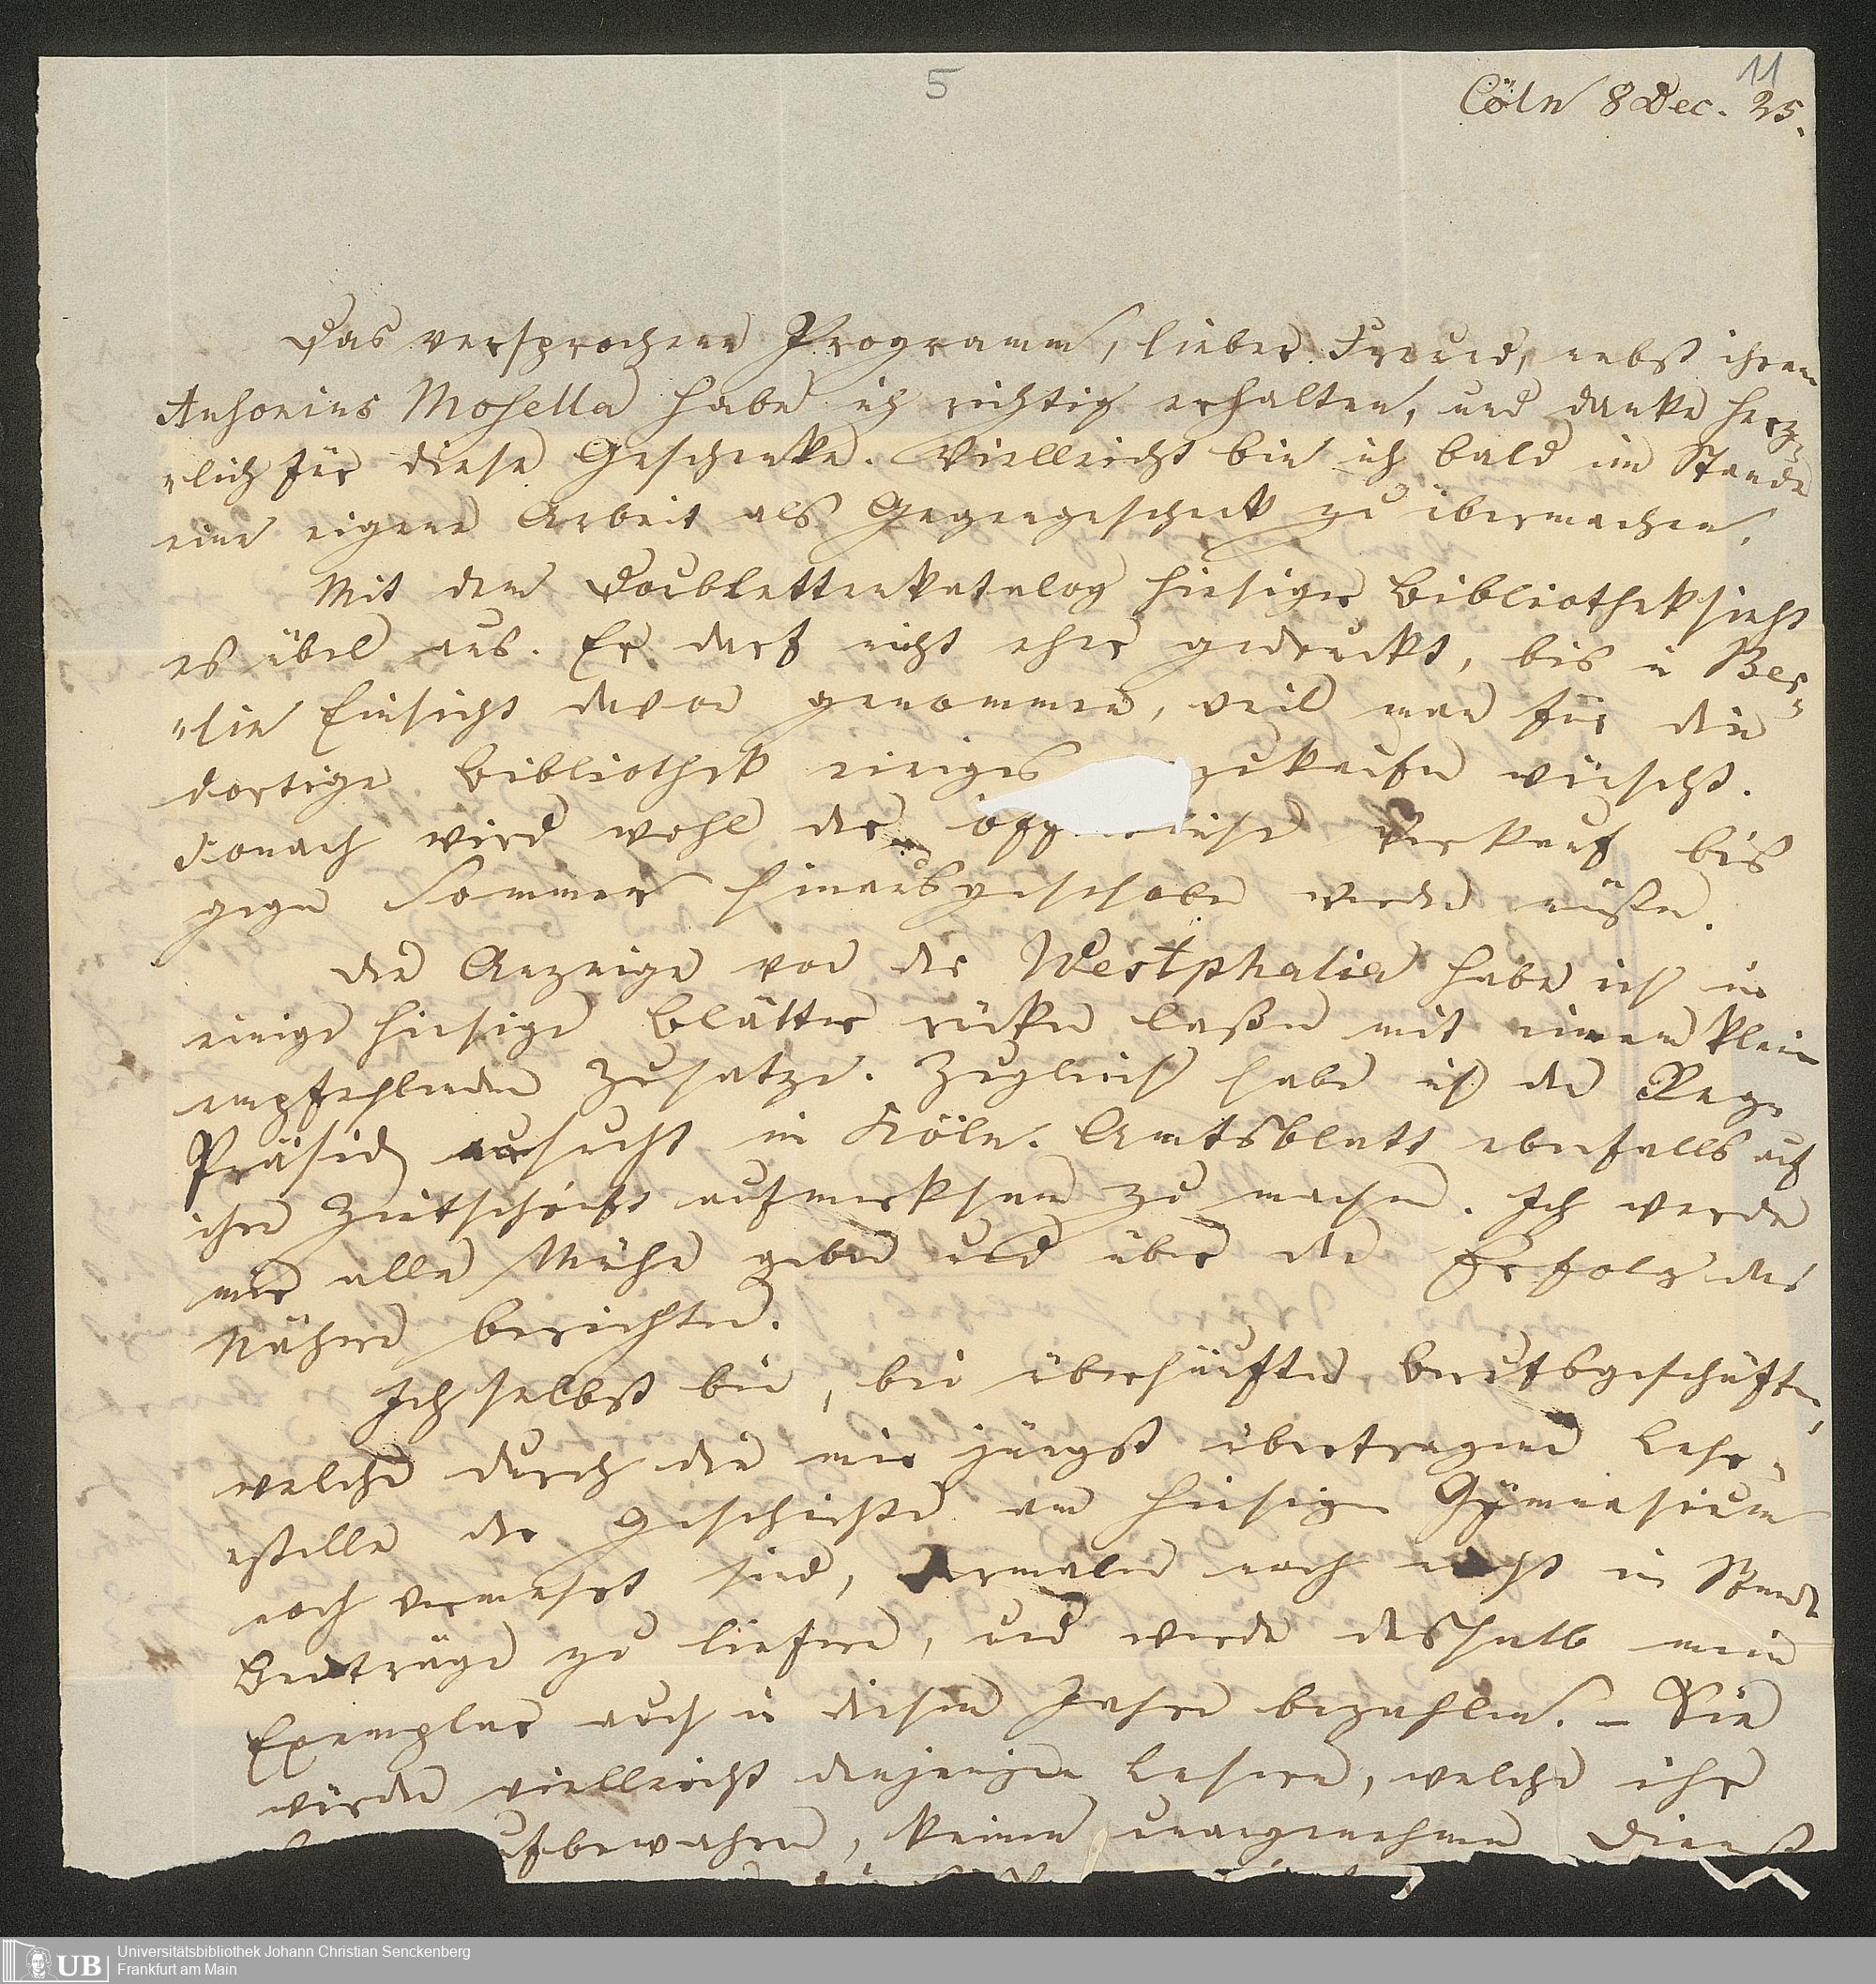 5
11
Cöln 8 Dec. 25.
Das versprochene Programm, lieber Freund, nebst ihrem
Ausonius Mosella habe ich richtig erhalten, und danke herz=
=lich für diese Geschenke. Vielleicht bin ich bald im Stande
eine eigene Arbeit als Gegengeschenk zu übermachen.
Mit dem Doublettenkatalog hiesiger Bibliothek sieht
es übel aus. Er darf nicht eher gedruckt, bis in Ber=
=lin Einsicht davon genommen, weil man für die
dortige Bibliothek einiges zukaufen wünscht.
Donach wird wohl der Verkauf bis
gegen Sommer hinausgeschoben werden müßen.
Die Anzeige von der Westphalia habe ich in
einige hiesige Blätter rücken laßen mit einem klein
empfehlenden Zusatze. Zugleich habe ich den Reg.
Präsid ersucht im Köln. Amtsblatt ebenfalls auf
ihre Zeitschrift aufmerksam zu machen. Ich werde
mir alle Mühe geben und über den Erfolg das
Nähere berichten.
Ich selbst bin, bei überhäuften Berufsgeschäften,
welche durch die mir jüngst übertragene Lehr=
=stelle der Geschichte am hiesigen Gymnasium
noch vermehrt sind, dermalen noch nicht im Stande
Beiträge zu liefern, und werde deshalb mein
Exemplar auch in diesem Jahre bezahlen. – Sie
würden vielleicht denjenigen Lesern, welche ihr
aufbewahren, keinen unangenehmen Dienst
Universitätsbibliothek Johann Christian Senckenberg
UB Frankfurt am Main